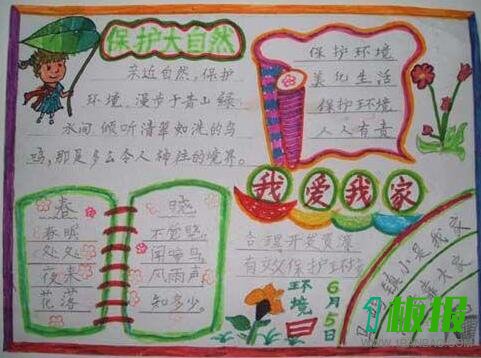 保护大自然
亲近自然,保护
环境,漫步于青山绿
水间,倾听清翠如洗的鸟
鸣,那是多么令人神往的境界。
保护环境
美化生活
保护环境
人人有责
我爱我家
春晓
春眠不觉晓,
处处闻啼鸟
夜来风雨声
花落知多少。
合理开发资源
有效保护环境
6月5日
环境日
镇小是我家
靠大家
板报
WWW.1BANBAO.COM